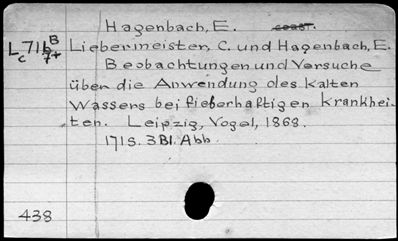 Hagenbach, E.
L716 B
c 7+
Liebermeister, C. und Hagenbach, E.
Beobachtungen und Versuche
über die Anwendung des Kalten
Wassers bei fieberhaftigen Krankhei-
ten. Leipzig, Vogel, 1868.
171S. 3Bl. Abb.
438